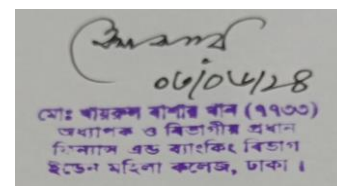 ০৬/০৬/২৪
মোঃ খায়রুল বাশার খান (১৭৩৩)
অধ্যাপক ও বিভাগীয় প্রধান
ফিন্যান্স এন্ড ব্যাংকিং বিভাগ
ইডেন মহিলা কলেজ, ঢাকা।